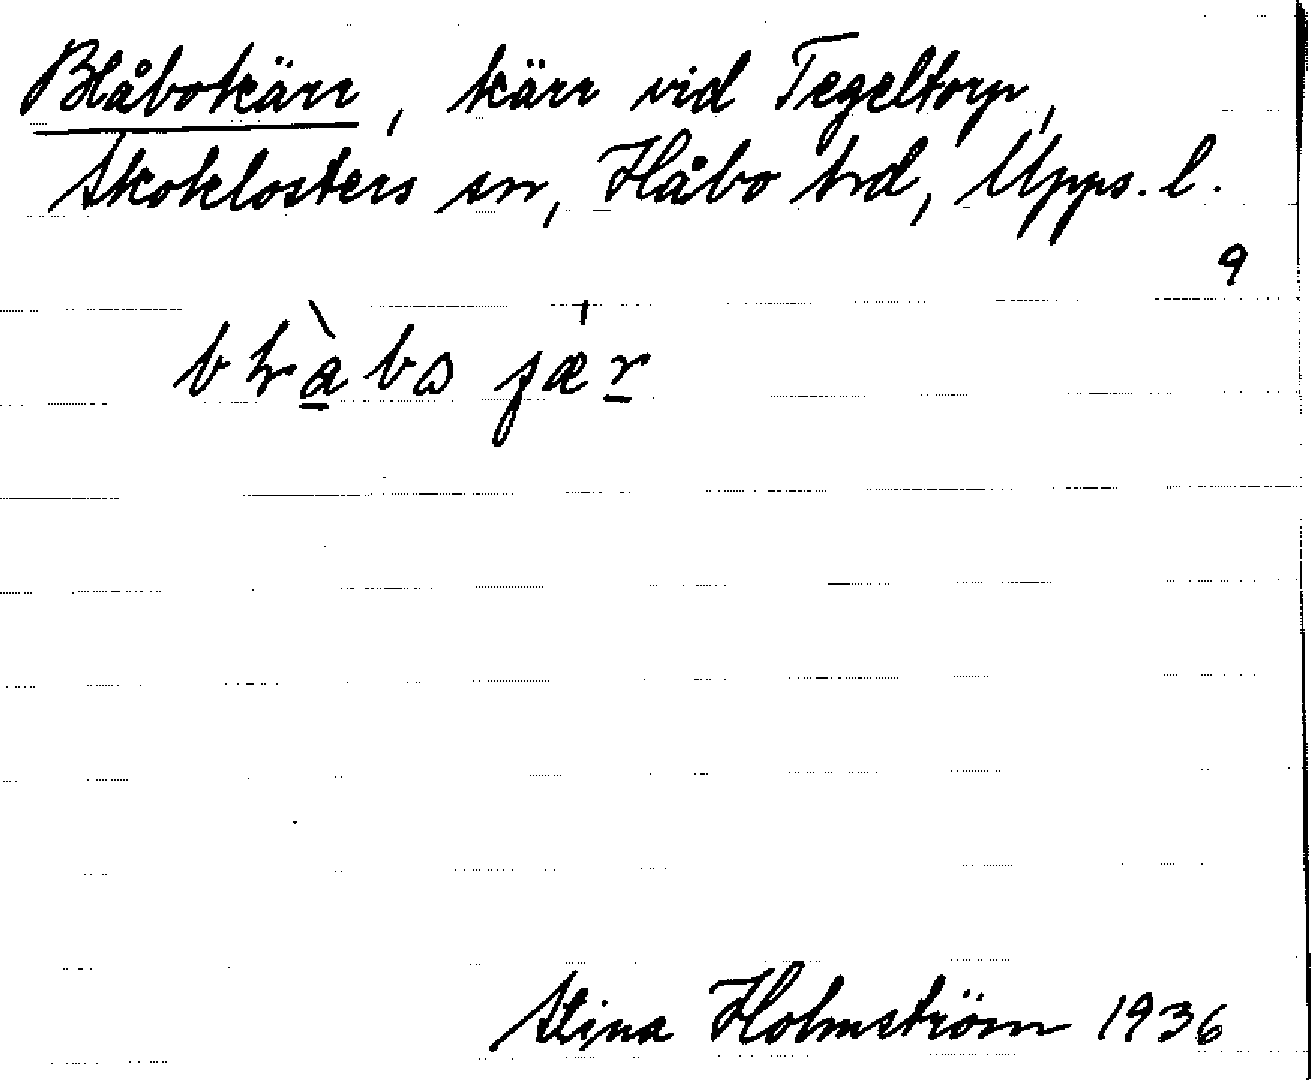 Blåbokärr, kärr vid Tegeltorp,
Skoklosters sn, Håbo hrd, Upps. l.
9
Stina Holmström 1936